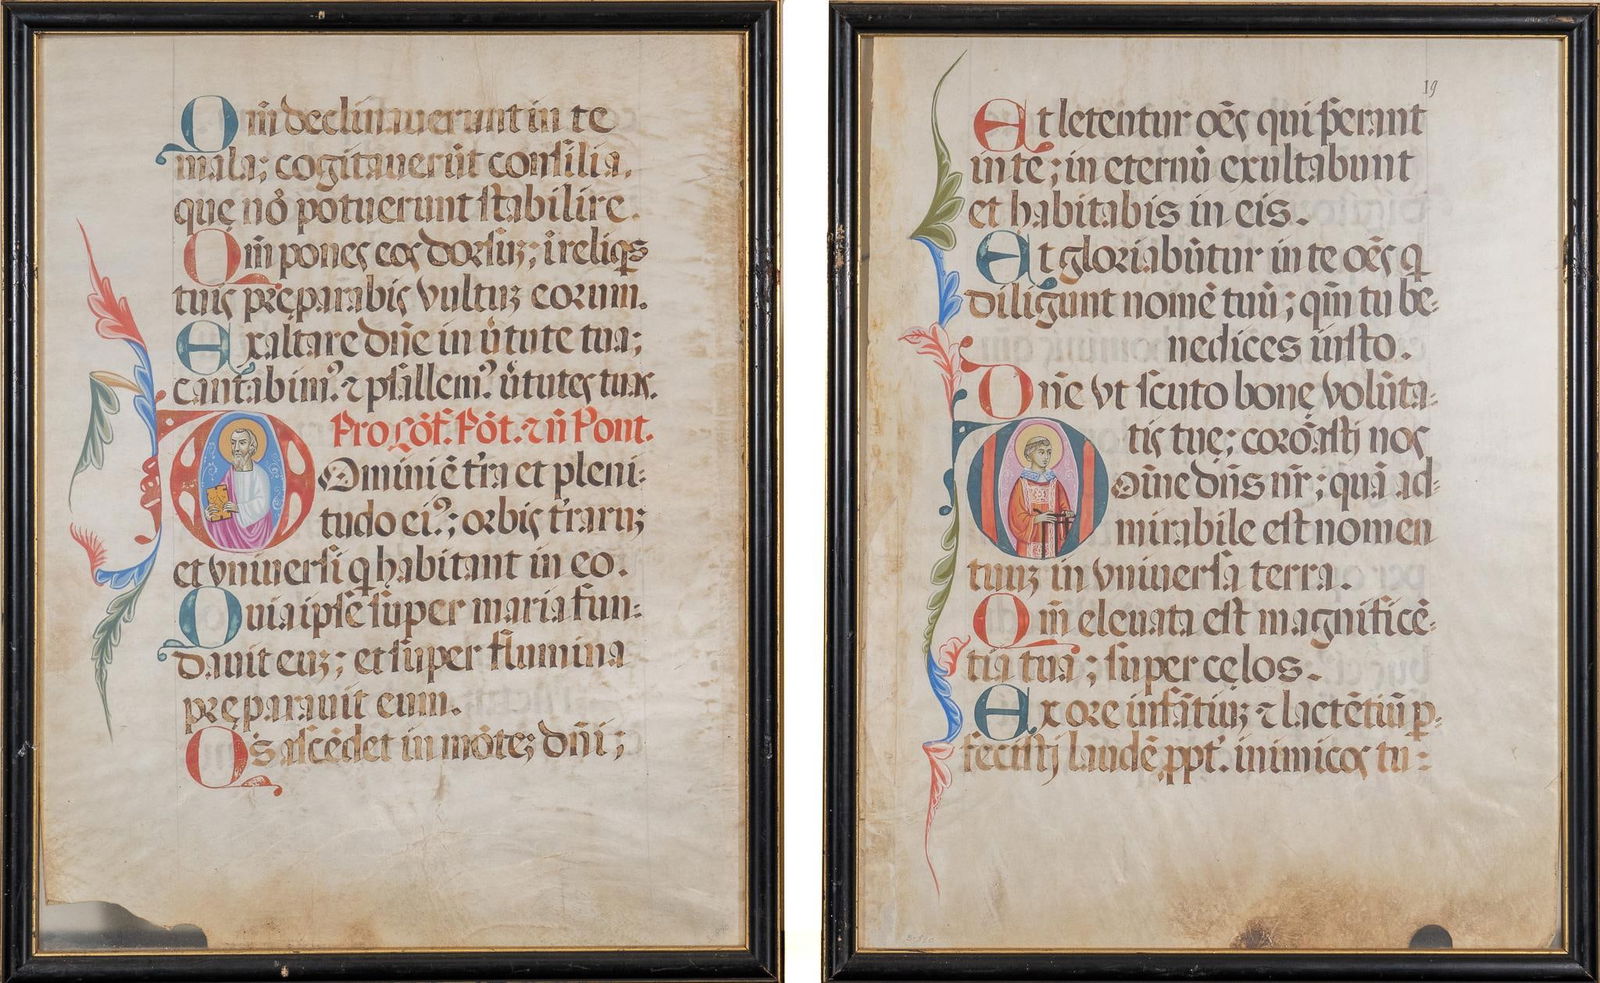 Qm̄ declinauerunt in te
mala; cogitauerūt consilia.
quę nō potuerunt stabilire.
Qm̄ pones eos dorsuʒ; ī reliqs
tuis pręparabis vultuʒ eorum.
Exaltare dn̄e in ūtute tua;
cantabimꝰ. ⁊ psallemꝰ ūtutes tuas.
Pro cōf. Pōt. ⁊ nō Pont.
Domini ē tr̄a et pleni-
tudo eiꝰ; orbis tr̄aruʒ
et vniuersi q habitant in eo.
Quia ipse super maria fun-
dauit euʒ; et super flumina
pręparauit eum.
Qs ascēdet in mōteʒ dn̄i;
19
Et letentur oēs qui sperant
in te; in eternū exultabunt
et habitabis in eis.
Et gloriabūtur in te oēs q
diligunt nomē tuū; qm̄ tu be-
nedices iusto.
Dn̄e vt scuto bonę volūta-
tis tuę; corōasti nos
Dōine dn̄s nr̄; quā ad-
mirabile est nomen
tuuʒ in vniuersa terra.
Qm̄ eleuata est magnificē-
tia tua; super cęlos.
Ex ore infātiuʒ ⁊ lactētiū p-
fecisti laudē ppt̄. inimicos tu-